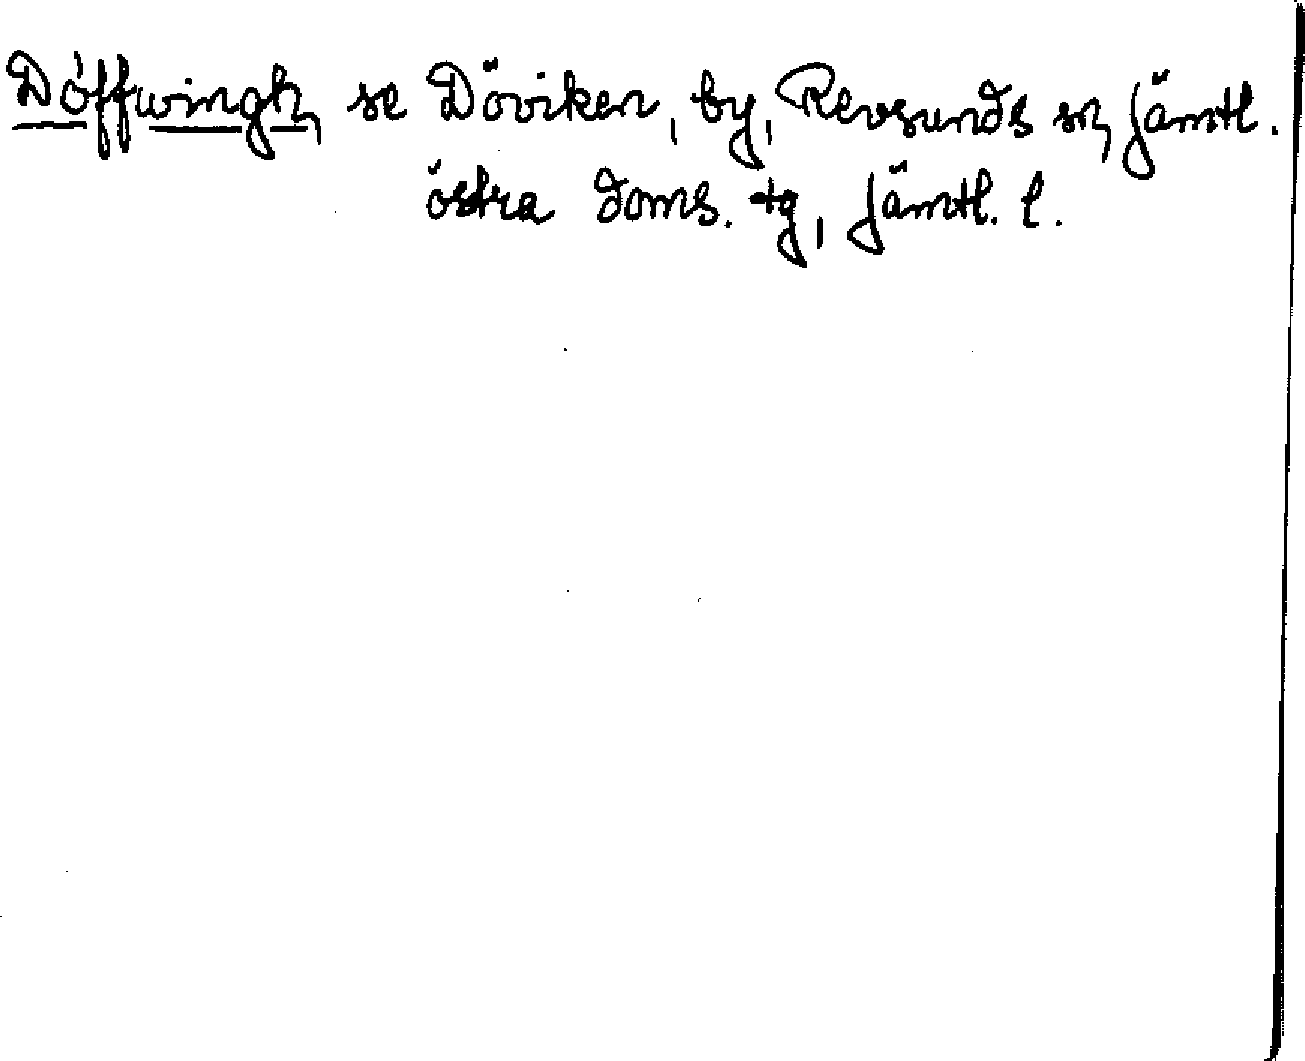 Döffwingh, se Döviken, by, Revsunds sn, Jämtl.
östra doms. tg, Jämtl. l.